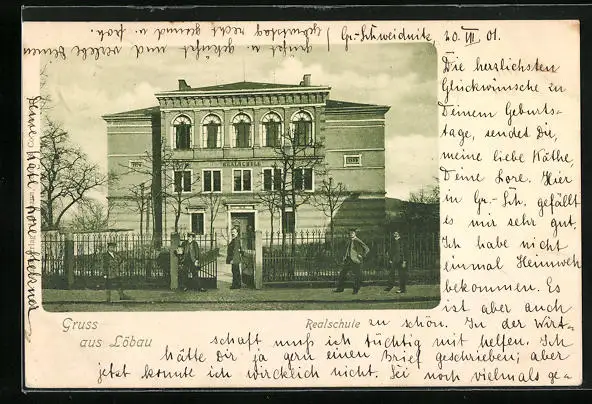 Gr.-Schweidnitz, 20. III. 01.
Die herzlichsten
Glückwünsche zu
Deinem Geburts-
tage, sendet Dir,
meine liebe Käthe,
Deine Lore. Hier
in Gr.-Sch. gefällt
es mir sehr gut.
Ich habe nicht
einmal Heimweh
bekommen. Es
ist aber auch
zu schön. In der Wirt-
schaft muß ich tüchtig mit helfen. Ich
hätte Dir ja gern einen Brief geschrieben; aber
jetzt konnte ich wirklich nicht. Sei noch vielmals ge-
grüßt u. geküßt und verlebe Deinen
Geburtstag recht gesund u. froh.
REALSCHULE
Gruss
aus Löbau
Realschule